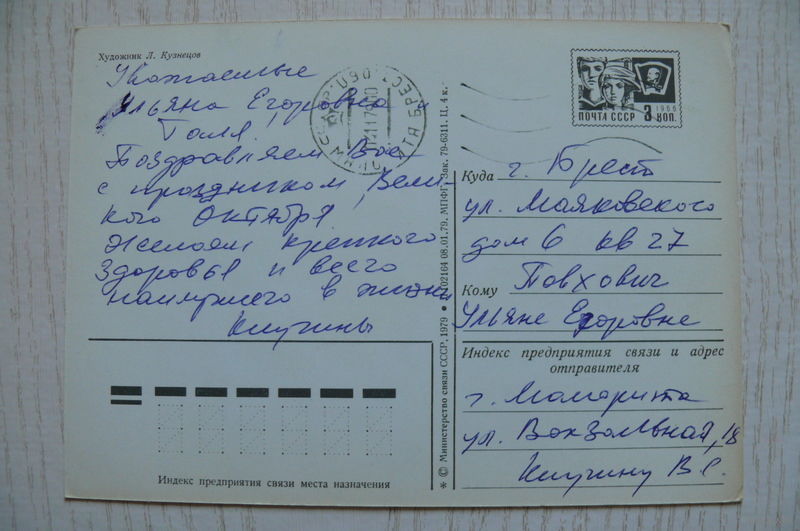 Художник Л. Кузнецов
Уважаемые
Ульяна Егоровна и
Галя!
Поздравляем Вас
с праздником Вели-
кого Октября!
Желаем крепкого
здоровья и всего
наилучшего в жизни
1966
3 КОП.
ПОЧТА СССР
Куда г. Брест
ул. Маяковского
дом 6 кв 27
Кому Повхович
Ульяне Егоровне
Индекс предприятия связи и адрес
отправителя
г.
ул. Вокзальная, 18
В С.
Индекс предприятия связи места назначения
* © Министерство связи СССР, 1979 • 02164 08.01.79. МПФГ. Зак. 79-6311. Ц. 4 к.
БРЕСТ